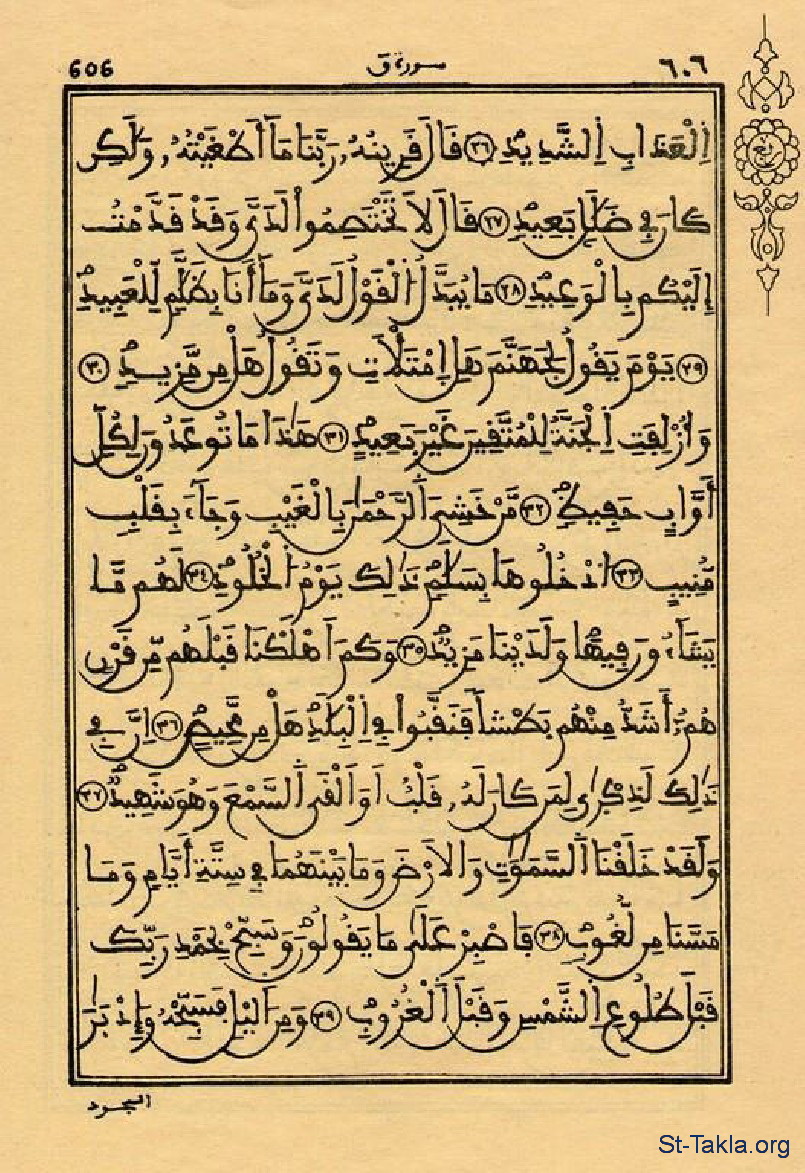 606 سورة ق ٦٠٦
ربع
اِ۬لْعَذَابِ اِ۬لشَّدِيدِ ٢٦ قَالَ قَرِينُهُۥ رَبَّنَا مَآ أَطْغَيْتُهُۥ وَلَٰكِن
كَانَ فِي ضَلَٰلِۢ بَعِيدٍ ٢٧ قَالَ لَا تَخْتَصِمُواْ لَدَيَّ وَقَدْ قَدَّمْتُ
إِلَيْكُم بِالْوَعِيدِ ٢٨ مَا يُبَدَّلُ اُ۬لْقَوْلُ لَدَيَّ وَمَآ أَنَا بِظَلَّٰمٍ لِّلْعَبِيدِ
٢٩ يَوْمَ يَقُولُ لِجَهَنَّمَ هَلِ اِ۪مْتَلَأْتِ وَتَقُولُ هَلْ مِن مَّزِيدٍ ٣٠
وَأُزْلِفَتِ اِ۬لْجَنَّةُ لِلْمُتَّقِينَ غَيْرَ بَعِيدٍ ٣١ هَٰذَا مَا تُوعَدُونَ لِكُلِّ
أَوَّابٍ حَفِيظٍ ٣٢ مَّنْ خَشِيَ اَ۬لرَّحْمَٰنَ بِالْغَيْبِ وَجَآءَ بِقَلْبٍ
مُّنِيبٍ ٣٣ اُ۟دْخُلُوهَا بِسَلَٰمٍ ذَٰلِكَ يَوْمُ اُ۬لْخُلُودِ ٣٤ لَهُم مَّا
يَشَآءُونَ فِيهَا وَلَدَيْنَا مَزِيدٌ ٣٥ وَكَمَ اَهْلَكْنَا قَبْلَهُم مِّن قَرْنٍ
هُمُۥٓ أَشَدُّ مِنْهُم بَطْشاً فَنَقَّبُواْ فِي اِ۬لْبِلَٰدِ هَلْ مِن مَّحِيصٍ ٣٦ اِنَّ فِي
ذَٰلِكَ لَذِكْر۪ىٰ لِمَن كَانَ لَهُۥ قَلْبٌ اَوَ اَلْقَى اَ۬لسَّمْعَ وَهُوَ شَهِيدٌ ٣٧
وَلَقَدْ خَلَقْنَا اَ۬لسَّمَٰوَٰتِ وَالَارْضَ وَمَا بَيْنَهُمَا فِي سِتَّةِ أَيَّامٍ وَمَا
مَسَّنَا مِن لُّغُوبٍ ٣٨ فَاصْبِرْ عَلَىٰ مَا يَقُولُونَ وَسَبِّحْ بِحَمْدِ رَبِّكَ
قَبْلَ طُلُوعِ اِ۬لشَّمْسِ وَقَبْلَ اَ۬لْغُرُوبِ ٣٩ وَمِنَ اَ۬ليْلِ فَسَبِّحْهُ وَإِدْبَٰرَ
السجود
St-Takla.org